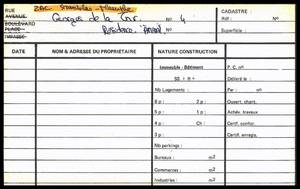 RUE ZAC Stanislas - Meurthe CADASTRE :
AVENUE
BOULEVARD Georges de la Tour N° 4 Réf : N°
PLACE Résidence "Amiral" N° Superficie :
IMPASSE
DATE NOM & ADRESSE DU PROPRIÉTAIRE NATURE CONSTRUCTION
Immeuble - Bâtiment P. C. n°
SS + R + Délivré le :
Nb Logements : Par : n°
6 p : 2 p : Ouvert. chant.
5 p : 1 p : Achèv. travaux
4 p : Ch : Certif. confor.
3 p : Certif. enregis.
Nb parkings :
Bureaux : m2
Commerces : m2
Industries : m2